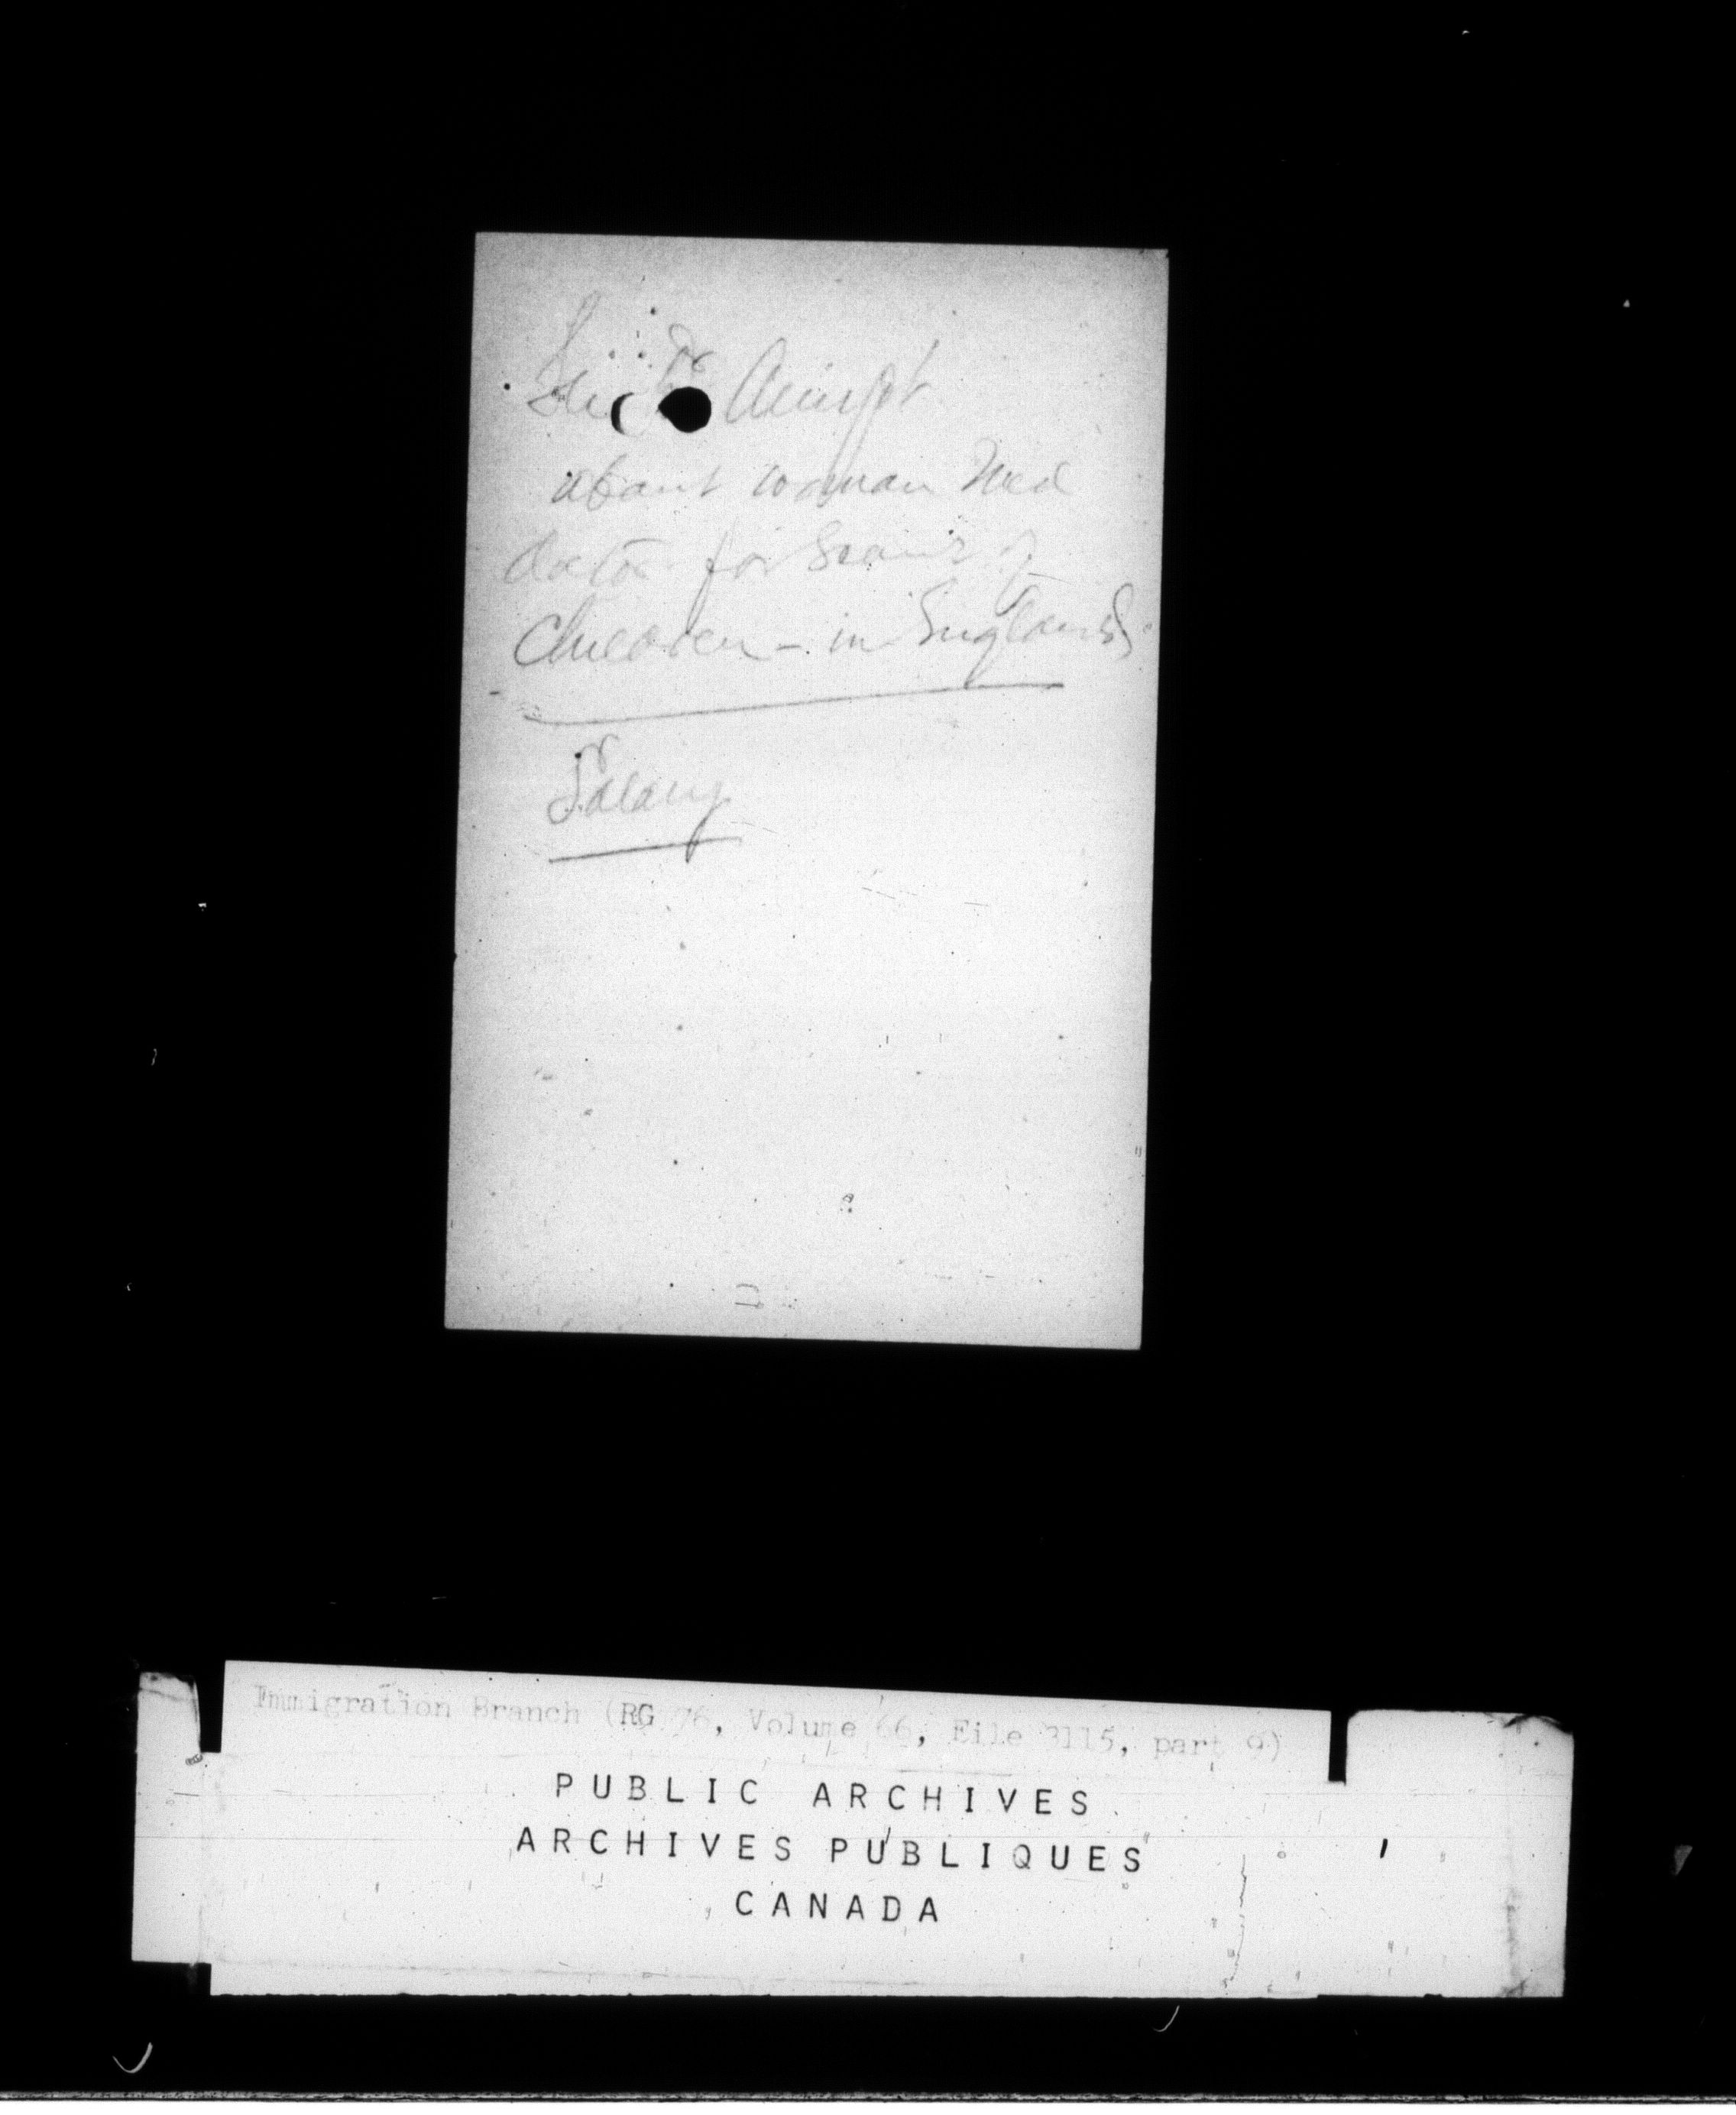 Dr Amyot
about woman Med
doctor for Exam'r of
Children - in England
Salary
Immigration Branch (RG 76, Volume 66, File 3115, part 9)
PUBLIC ARCHIVES
ARCHIVES PUBLIQUES
CANADA